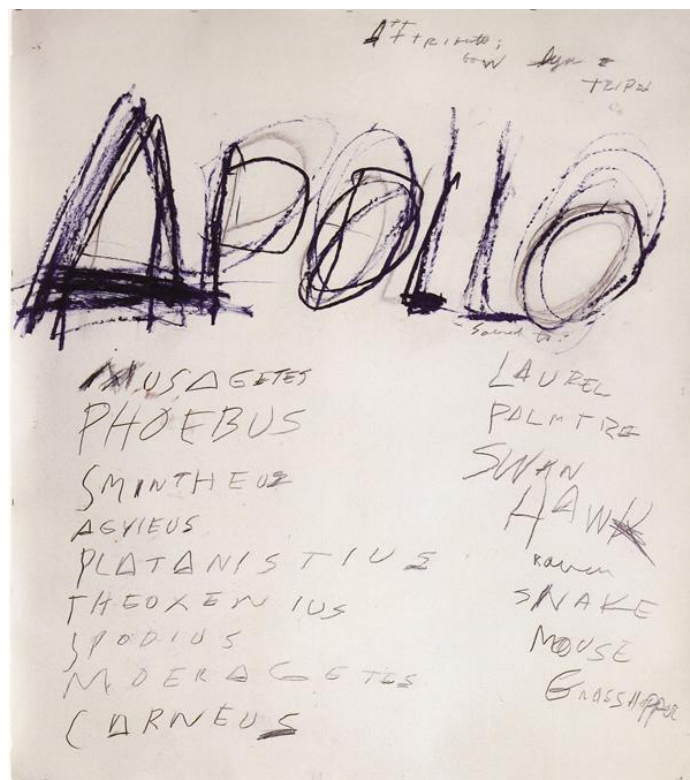 Attributes:
BOW lyre
TRIPOD
APOLLO
Sacred to:
MUSAGETES
PHOEBUS
SMINTHEUS
AGYIEUS
PLATANISTIUS
THEOXENIUS
SPODIUS
MOERAGETES
CARNEUS
LAUREL
PALM TREE
SWAN
HAWK
RAVEN
SNAKE
MOUSE
GRASSHOPPER